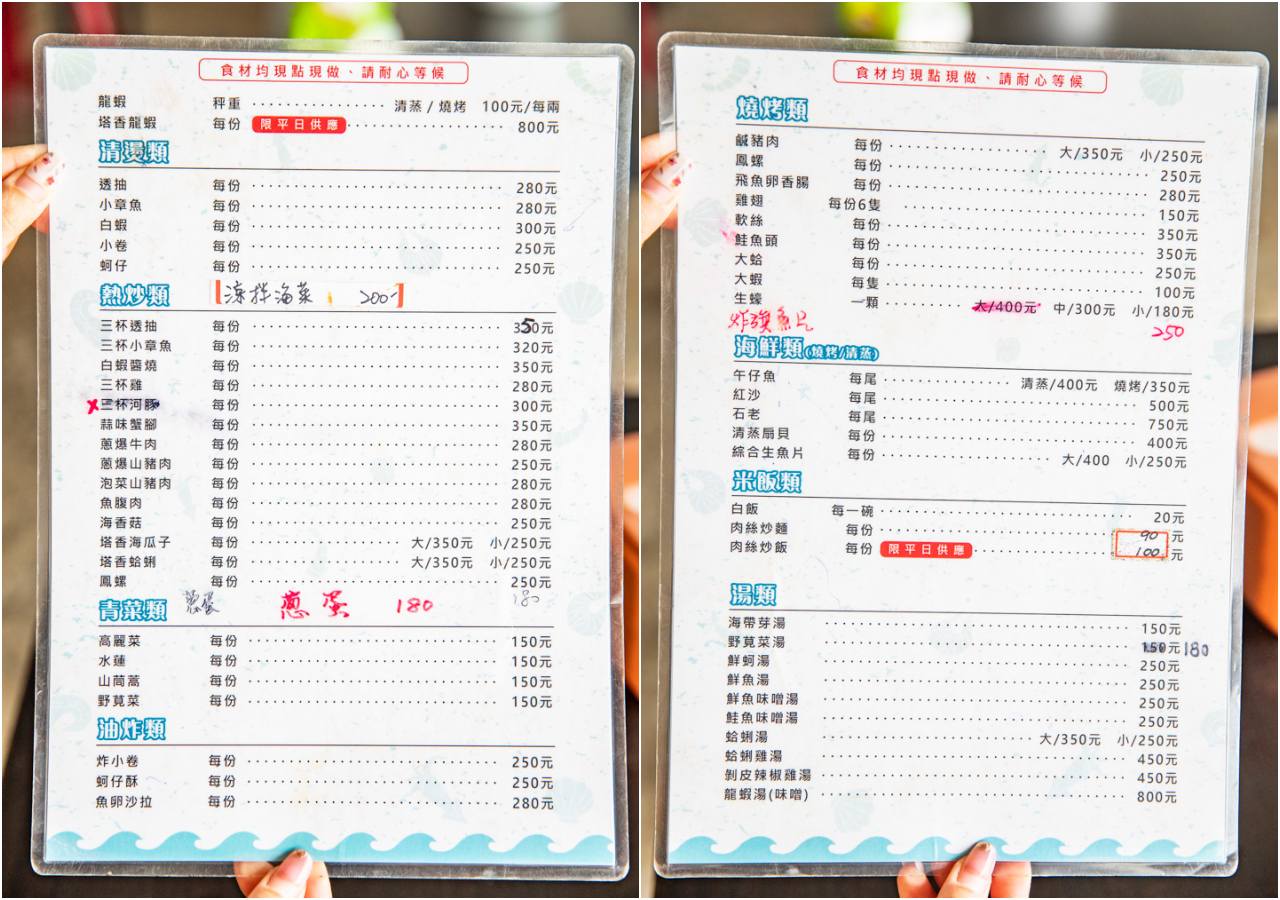 食材均現點現做、請耐心等候
龍蝦 秤重 清蒸/燒烤 100元/每兩
塔香龍蝦 每份 限平日供應 800元
清燙類
透抽 每份 280元
小章魚 每份 280元
白蝦 每份 300元
小卷 每份 250元
蚵仔 每份 250元
熱炒類 涼拌海菜 200
三杯透抽 每份 350元
三杯小章魚 每份 320元
白蝦醬燒 每份 350元
三杯雞 每份 280元
x三杯河豚 每份 300元
蒜味蟹腳 每份 350元
蔥爆牛肉 每份 280元
蔥爆山豬肉 每份 250元
泡菜山豬肉 每份 280元
魚腹肉 每份 280元
海香菇 每份 250元
塔香海瓜子 每份 大/350元 小/250元
塔香蛤蜊 每份 大/350元 小/250元
鳳螺 每份 250元
青菜類 蔥蛋 蔥蛋 180 180
高麗菜 每份 150元
水蓮 每份 150元
山茼蒿 每份 150元
野莧菜 每份 150元
油炸類
炸小卷 每份 250元
蚵仔酥 每份 250元
魚卵沙拉 每份 280元
食材均現點現做、請耐心等候
燒烤類
鹹豬肉 每份 大/350元 小/250元
鳳螺 每份 250元
飛魚卵香腸 每份 280元
雞翅 每份6隻 150元
軟絲 每份 350元
鮭魚頭 每份 350元
大蛤 每份 250元
大蝦 每隻 100元
生蠔 一顆 大/400元 中/300元 小/180元
炸 魚片 250
海鮮類(燒烤/清蒸)
午仔魚 每尾 清蒸/400元 燒烤/350元
紅沙 每尾 500元
石老 每尾 750元
清蒸扇貝 每份 400元
綜合生魚片 每份 大/400 小/250元
米飯類
白飯 每一碗 20元
肉絲炒麵 每份 90元
肉絲炒飯 每份 限平日供應 100元
湯類
海帶芽湯 150元
野莧菜湯 150元 180
鮮蚵湯 250元
鮮魚湯 250元
鮮魚味噌湯 250元
鮭魚味噌湯 250元
蛤蜊湯 大/350元 小/250元
蛤蜊雞湯 450元
剝皮辣椒雞湯 450元
龍蝦湯(味噌) 800元